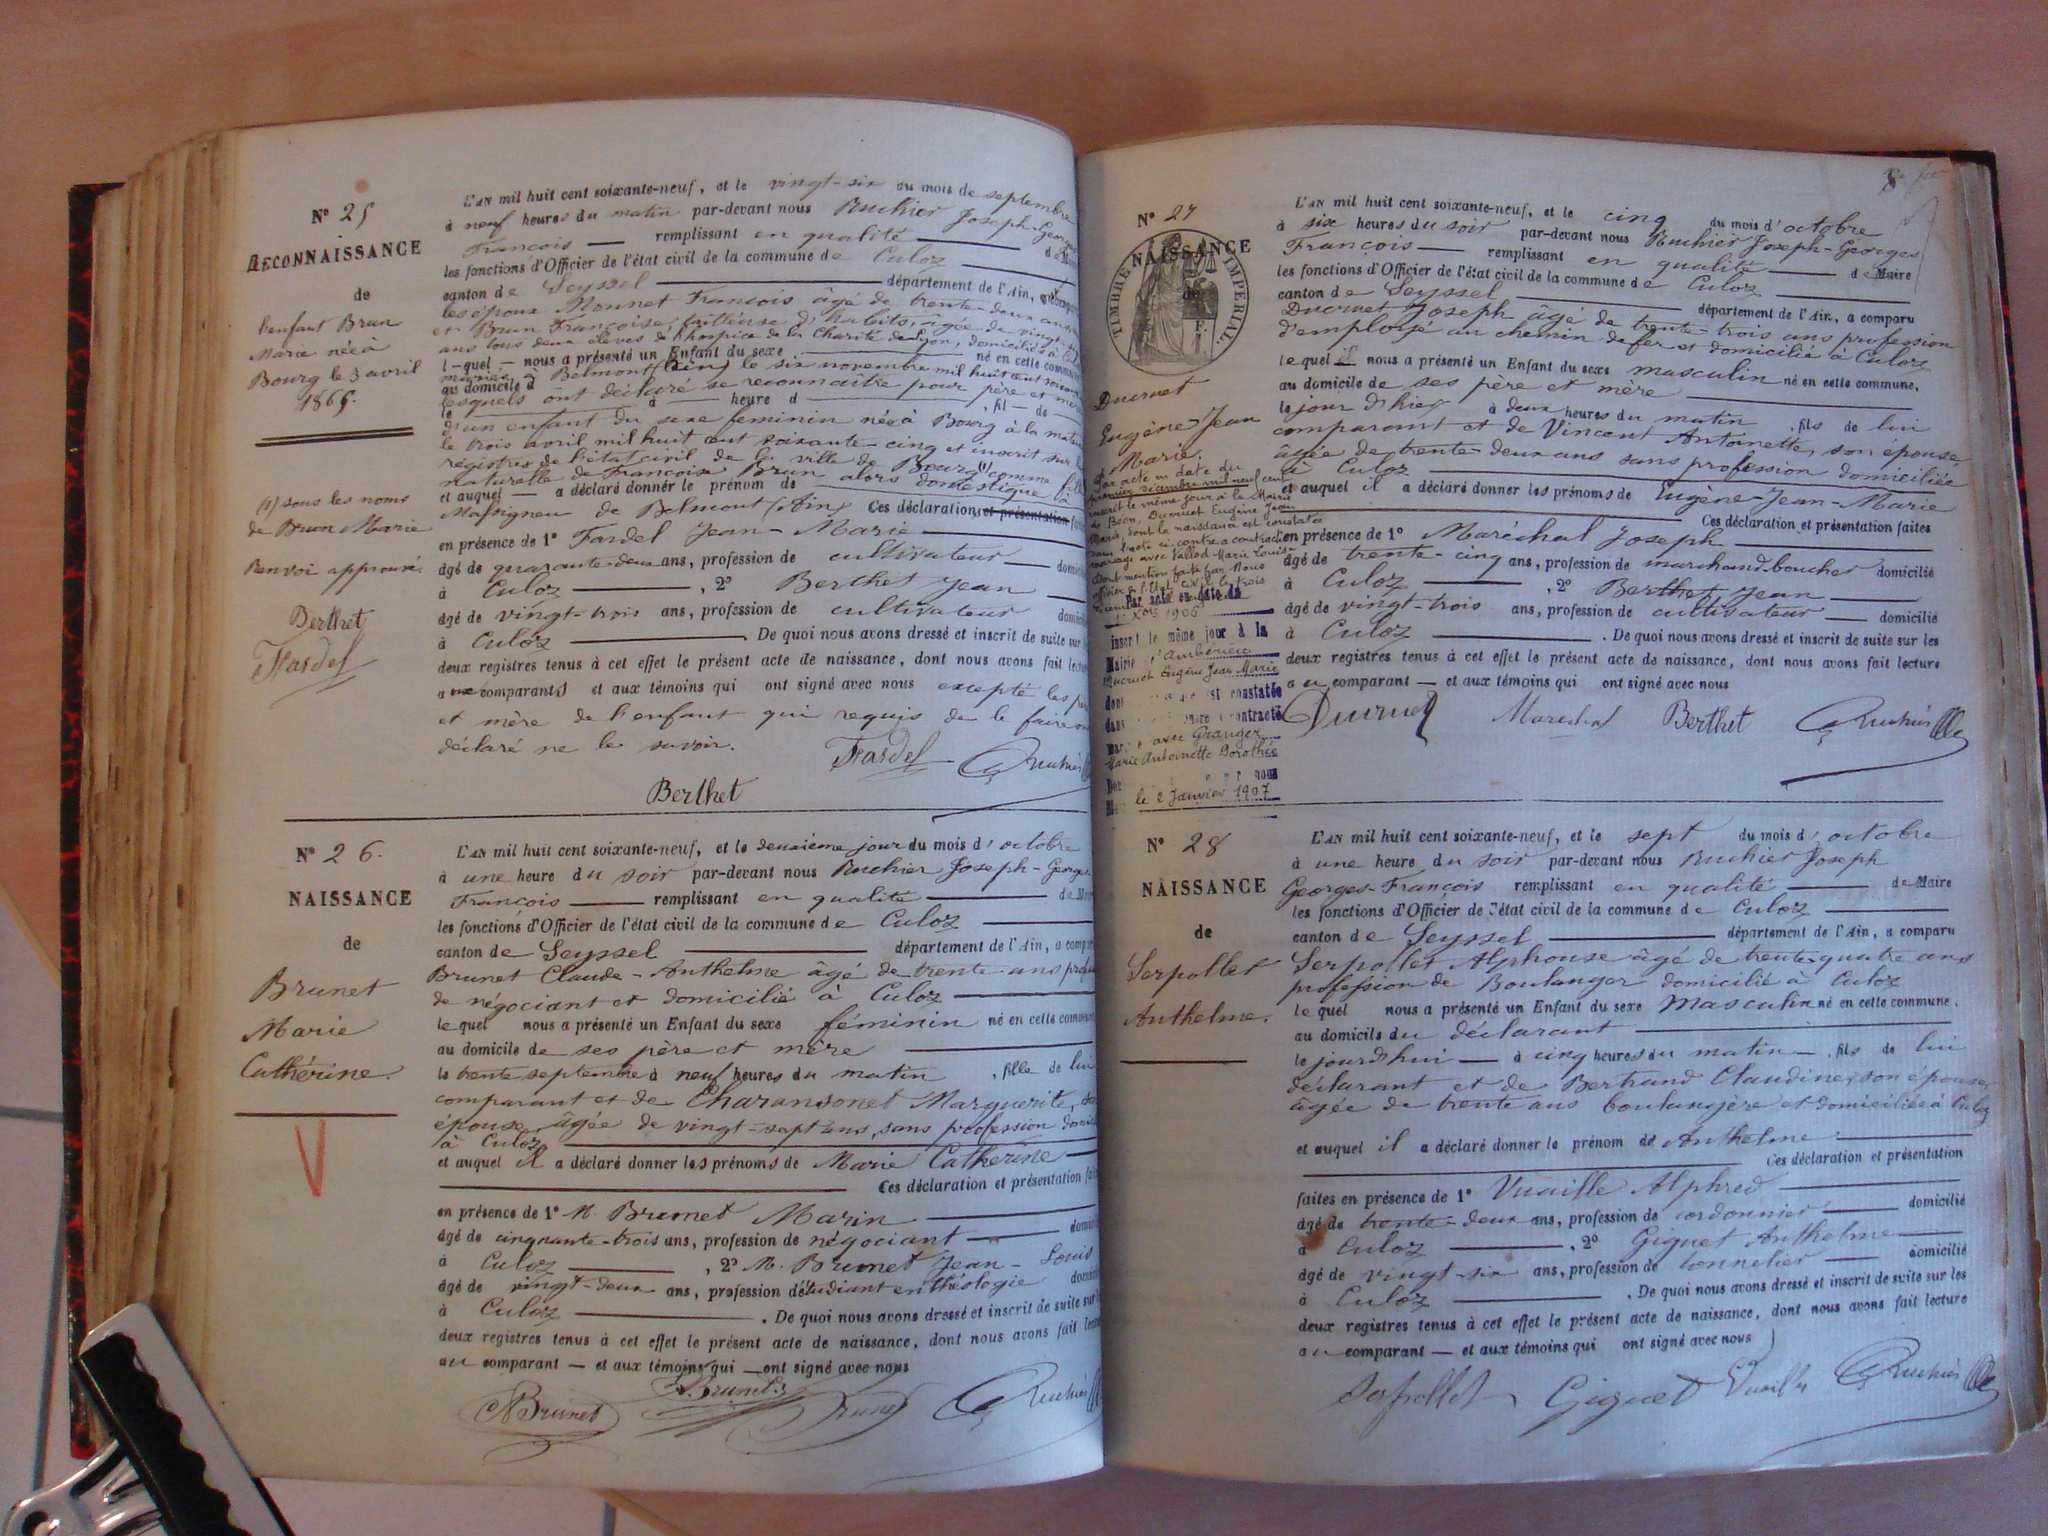 N° 25
RECONNAISSANCE
de
l'enfant Brun
Marie née à
Bourg le 3 avril
1865.
(1) sous les noms
de Brun Marie
Renvoi approuvé.
Berthet
Fardel
L'AN mil huit cent soixante-neuf, et le vingt-six du mois de septembre
à neuf heures du matin par-devant nous Ruchier Joseph-Georges
François remplissant en qualité de Maire
les fonctions d'Officier de l'état civil de la commune de Culoz
canton de Seyssel département de l'Ain,
les époux Monnet François âgé de trente-deux ans
et Brun Françoise, tailleuse d'habits, âgée de vingt
ans tous deux élèves de l'hospice de la Charité de Lyon, domiciliés à
l-quel — nous a présenté un Enfant du sexe né en cette commune
mariés à Belmont (Ain) le six novembre mil huit cent soixante
au domicile d
lesquels ont déclaré se reconnaître pour père et mère
le à heure d , fil — de
d'un enfant du sexe féminin née à Bourg à la
le trois avril mil huit cent soixante-cinq et inscrit sur les
régistres de l'état civil de la ville de Bourg (1) comme fille
naturelle de Françoise Brun alors domestique à
et auquel — a déclaré donner le prénom de
Massigneu de Belmont (Ain) Ces déclarations et présentation
en présence de 1° Fardel Jean-Marie
âgé de quarante-deux ans, profession de cultivateur
à Culoz , 2° Berthet Jean
âgé de vingt-trois ans, profession de cultivateur
à Culoz . De quoi nous avons dressé et inscrit de suite sur
deux registres tenus à cet effet le présent acte de naissance, dont nous avons fait lecture
a comparants et aux témoins qui ont signé avec nous excepté les
et mère de l'enfant qui requis de le faire ont
déclaré ne le savoir. Fardel Ruchier
Berthet
N° 26.
NAISSANCE
de
Brunet
Marie
Cathérine.
L'AN mil huit cent soixante-neuf, et le deuxième jour du mois d'octobre
à une heure du soir par-devant nous Ruchier Joseph-Georges
François remplissant en qualité de Maire
les fonctions d'Officier de l'état civil de la commune de Culoz
canton de Seyssel département de l'Ain, a comparu
Brunet Claude-Anthelme âgé de trente ans
de négociant et domicilié à Culoz
lequel nous a présenté un Enfant du sexe féminin né en cette commune
au domicile de ses père et mère
le trente septembre à neuf heures du matin , fille de lui
comparant et de Charansonet Marguerite,
épouse, âgée de vingt-sept ans, sans profession
à Culoz
et auquel il a déclaré donner les prénoms de Marie Cathérine
Ces déclaration et présentation
en présence de 1° M. Brunet Marin
âgé de cinquante-trois ans, profession de négociant
à Culoz , 2° M. Brunet Jean-Louis
âgé de vingt-deux ans, profession d'étudiant en théologie
à Culoz . De quoi nous avons dressé et inscrit de suite sur
deux registres tenus à cet effet le présent acte de naissance, dont nous avons fait lecture
au comparant — et aux témoins qui — ont signé avec nous
Brunet Brunet Brunet Ruchier
N° 27
NAISSANCE
de
TIMBRE IMPERIAL.
Ducruet
Eugène-Jean
Marie.
Par acte en date du
premier décembre mil neuf cent
inscrit le même jour à la Mairie
de Béon, Ducruet Eugène Jean
Marie, dont la naissance est constatée
dans l'acte ci-contre a contracté
mariage avec Vallod Marie Louise
Dont mention faite par Nous
officier de l'Etat civil le trois
Par acte en date du
1906
inscrit le même jour à la
Mairie d'Ambérieu
Ducruet Eugène Jean Marie
dont est constatée
dans contracté
avec Granger
Marie Antoinette Dorothée
nous
le 2 Janvier 1907
L'AN mil huit cent soixante-neuf, et le cinq du mois d'octobre
à six heures du soir par-devant nous Ruchier Joseph-Georges
François remplissant en qualité de Maire
les fonctions d'Officier de l'état civil de la commune de Culoz
canton de Seyssel département de l'Ain, a comparu
Ducruet Joseph âgé de trente-trois ans profession
d'employé au chemin de fer et domicilié à Culoz
lequel il nous a présenté un Enfant du sexe masculin né en cette commune,
au domicile de ses père et mère
le jour d'hier à deux heures du matin , fils de lui
comparant et de Vincent Antoinette, son épouse,
âgée de trente-deux ans sans profession domiciliée
à Culoz
et auquel il a déclaré donner les prénoms de Eugène-Jean-Marie
Ces déclaration et présentation faites
en présence de 1° Maréchal Joseph
âgé de trente-cinq ans, profession de marchand boucher domicilié
à Culoz , 2° Berthet Jean
âgé de vingt-trois ans, profession de cultivateur domicilié
à Culoz . De quoi nous avons dressé et inscrit de suite sur les
deux registres tenus à cet effet le présent acte de naissance, dont nous avons fait lecture
au comparant — et aux témoins qui ont signé avec nous
Ducruet Marechal Berthet Ruchier
N° 28
NAISSANCE
de
Serpollet
Anthelme.
L'AN mil huit cent soixante-neuf, et le sept du mois d'octobre
à une heure du soir par-devant nous Ruchier Joseph
Georges-François remplissant en qualité de Maire
les fonctions d'Officier de l'état civil de la commune de Culoz
canton de Seyssel département de l'Ain, a comparu
Serpollet Alphonse âgé de trente-quatre ans
profession de Boulanger domicilié à Culoz
lequel nous a présenté un Enfant du sexe masculin né en cette commune.
au domicile du déclarant
le jourd'hui à cinq heures du matin , fils de lui
déclarant et de Bertrand Claudine, son épouse,
âgée de trente ans boulangère et domiciliée à Culoz
et auquel il a déclaré donner le prénom de Anthelme
Ces déclaration et présentation
faites en présence de 1° Vuaille Alphred
âgé de trente-deux ans, profession de cordonnier domicilié
à Culoz , 2° Giguet Anthelme
âgé de vingt-six ans, profession de tonnelier domicilié
à Culoz . De quoi nous avons dressé et inscrit de suite sur les
deux registres tenus à cet effet le présent acte de naissance, dont nous avons fait lecture
au comparant — et aux témoins qui ont signé avec nous
Serpollet Giguet Vuaille Ruchier